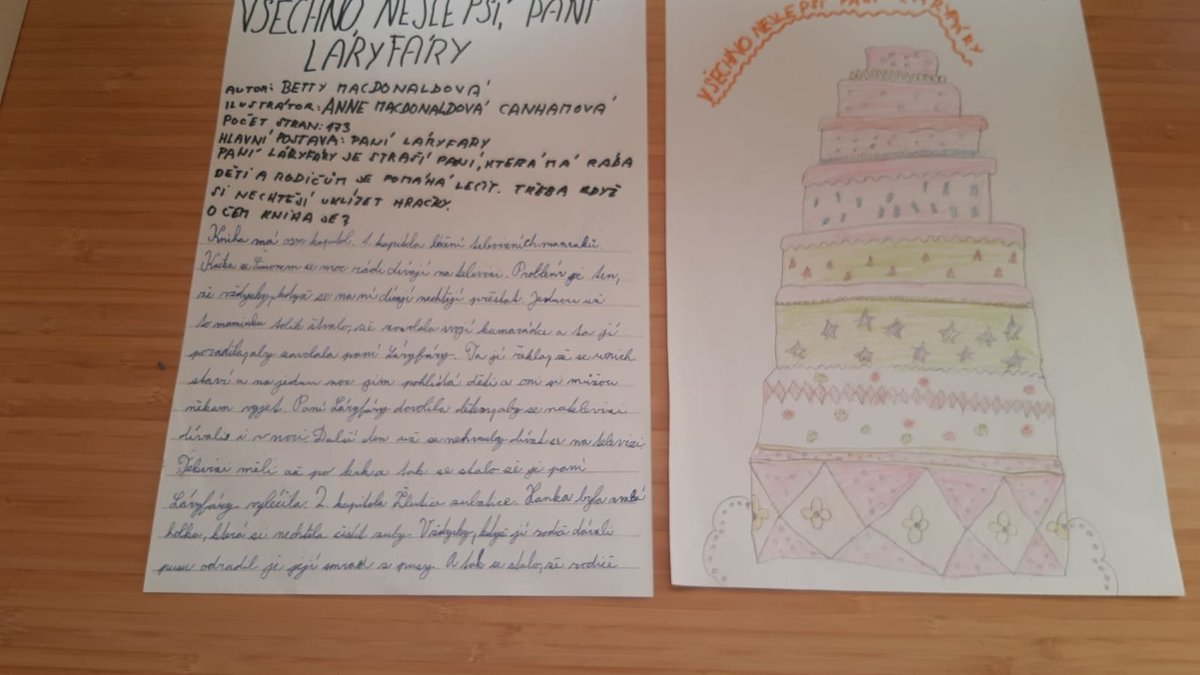 VŠECHNO NEJLEPŠÍ, PANÍ
LÁRYFÁRY
AUTOR: BETTY MACDONALDOVÁ
ILUSTRÁTOR: ANNE MACDONALDOVÁ CANHAMOVÁ
POČET STRAN: 173
HLAVNÍ POSTAVA: PANÍ LÁRYFÁRY
PANÍ LÁRYFÁRY JE STRAČÍ PANÍ, KTERÁ MÁ RÁDA
DĚTI A RODIČŮM JE POMÁHÁ LÉČIT. TŘEBA KDYŽ
SI NECHTĚJÍ UKLÍZET HRAČKY.
O ČEM KNIHA JE?
Kniha má osm kapitol. 1. kapitola léčení televizních maraků.
Katka se Šimonem se moc rádi dívají na televizi. Problém je ten,
že vždycky, když se na ní dívají nechtějí přestat. Jednou už
to maminku tolik štvalo, že zavolala svojí kamarádce a ta jí
poradila, aby zavolala paní Láryfáry. Ta jí řekla, že se u nich
staví a na jednu noc jim pohlídá děti a oni si můžou
někam vyjet. Paní Láryfáry dovolila dětem, aby se na televizi
dívali i v noci. Další den už se nemohly dívat se na televizi.
Televizi měli až po krk a tak se stalo že je paní
Láryfáry vyléčila. 2. kapitola Žlutá zubatice. Hanka byla
holka, která si nechtěla čistit zuby. Vždycky, když jí rodiče dávali
pusu odradil je její smrad z pusy. A tak se stalo, že rodiče
VŠECHNO NEJLEPŠÍ PANÍ LÁRYFÁRY